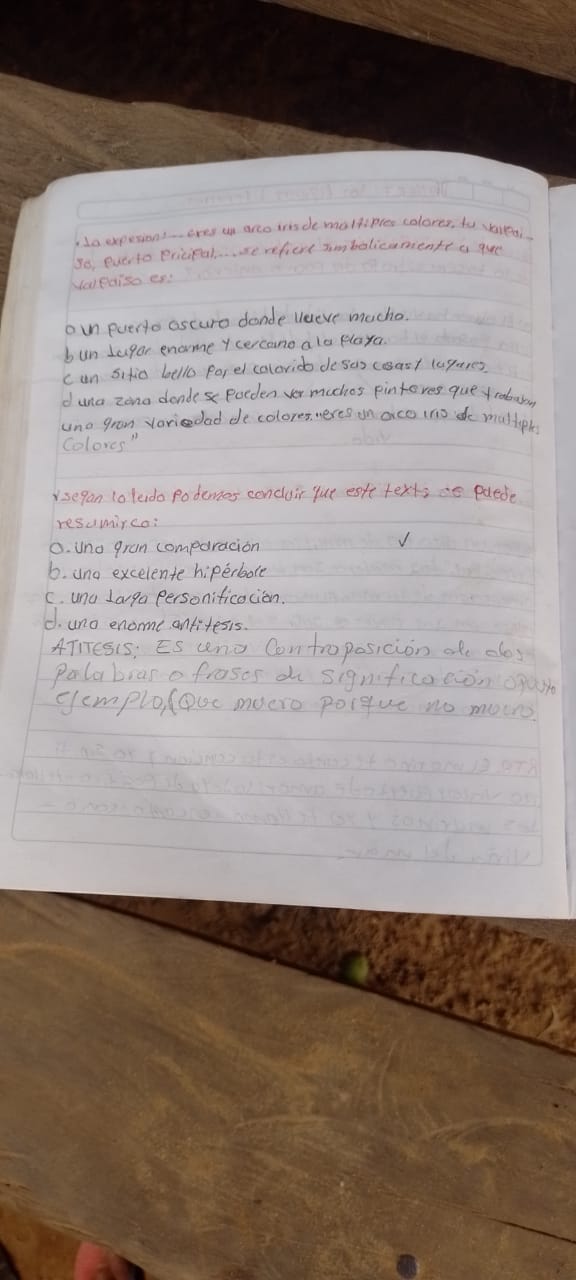 .La expesion:...eres un arco iris de maltiples colores, tu valpai-
so, puerto pricipal....se refiere simbolicamente a que
valpaiso es:
a un puerto oscuro donde llueve mucho.
b un lugar enorme y cercano a la playa.
c un sitio bello por el colorido de sus casas y lugares.
d una zona donde se pueden ver muchos pintores que trabajan
una gran variedad de colores. "eres un arco iris de multiples
Colores"
segun lo leido podemos concluir que este texto se puede
resumirco:
a. una gran comparación ✓
b. una excelente hipérbole
c. una larga personificacion.
d. una enorme antitesis.
ATITESIS: Es una Controposición de dos
palabras o frases de significación opusto
ejemplo,(Que muero porque no muero.